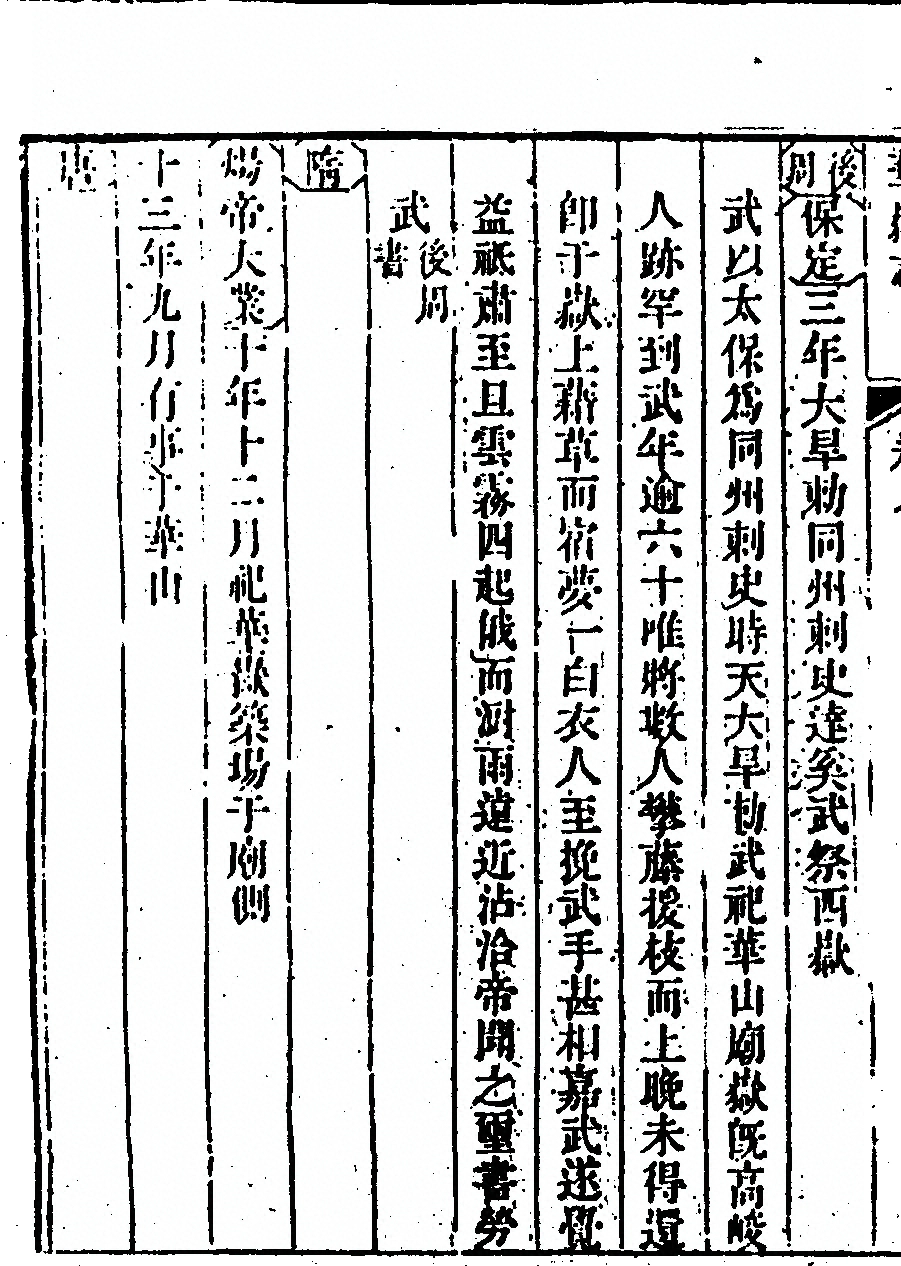 後周保定三年大旱勅同州刺史達奚武祭西嶽
武以太保爲同州刺史時天大旱勅武祀華山廟嶽既高峻
人跡罕到武年逾六十唯將數人攀藤援枝而上晚未得還
卽于嶽上藉草而宿夢一白衣人至挽武手甚相嘉武遂覺
益祗肅至旦雲霧四起俄而澍雨遠近沾洽帝聞之璽書勞
武後周書
隋
煬帝大業十年十二月祀華嶽築場于廟側
十三年九月有事于華山
唐